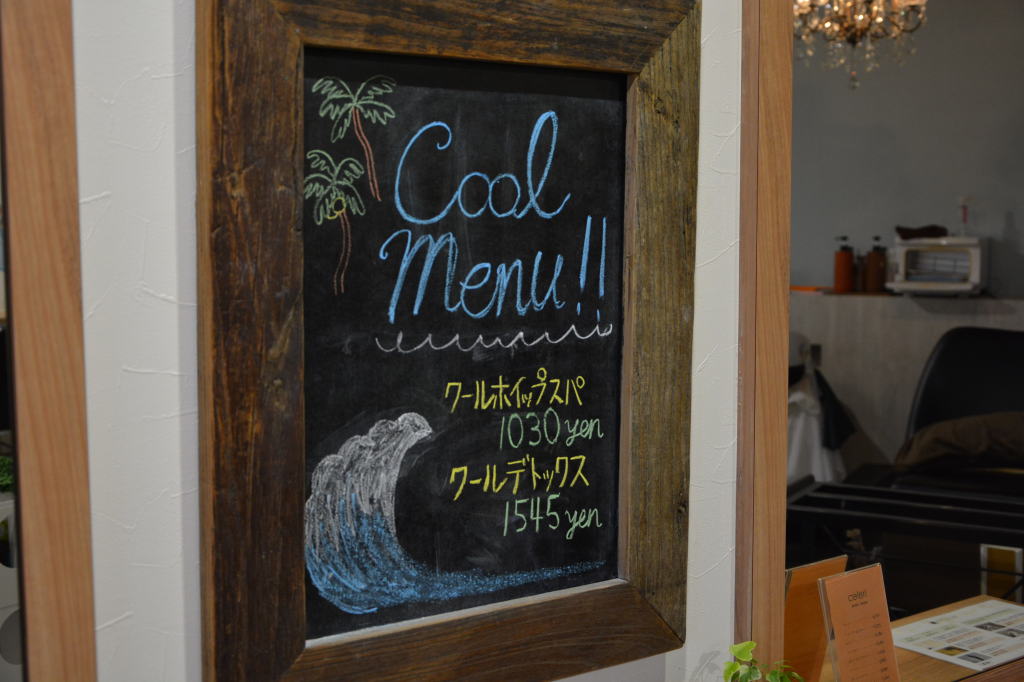 Cool
Menu!!
クールホイップスパ
1030 yen
クールデトックス
1545 yen
celeri